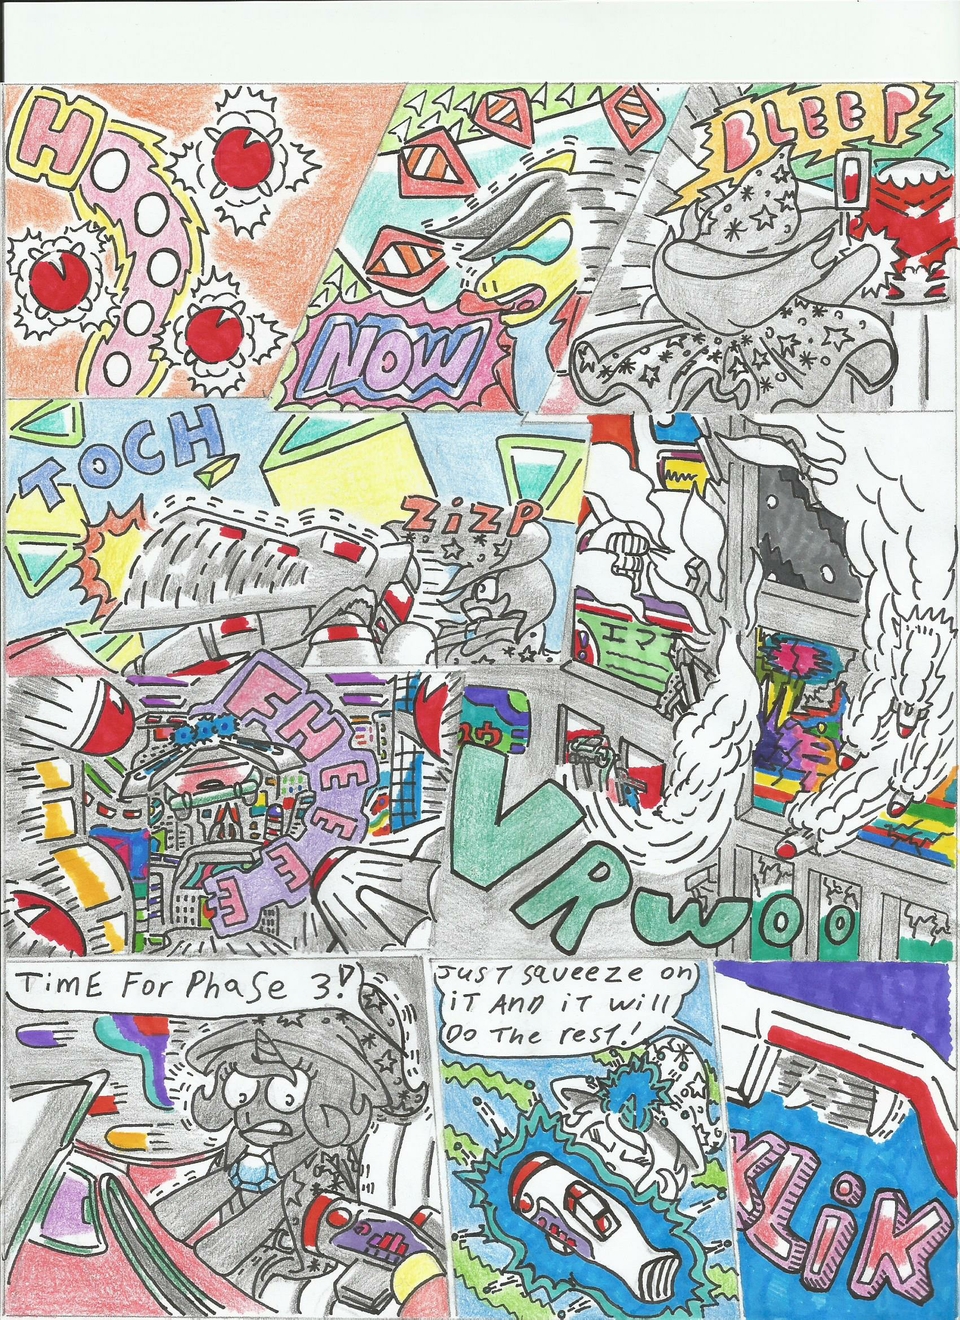 H
NOW
BLEEP
TOCH
ZiZP
FHEEEE
VRWOO
TimE For Phase 3!
Just squeeze on
iT And iT will
Do The rest!
KLiK